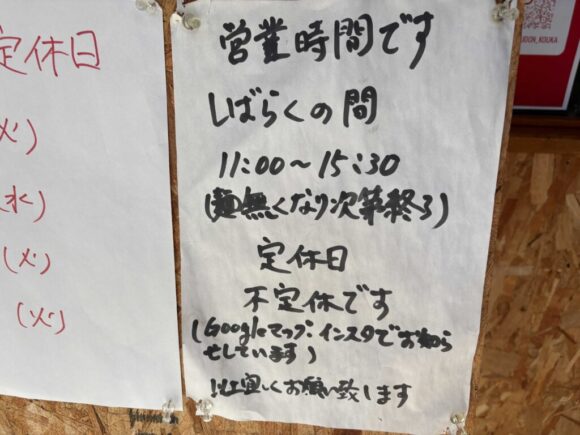 定休日
火)
水)
(火)
(火)
営業時間です
しばらくの間
11:00〜15:30
(麺無くなり次第終了)
定休日
不定休です
(Googleマップ・インスタでお知ら
せしています)
以上宜しくお願い致します
UDON_KOUKA